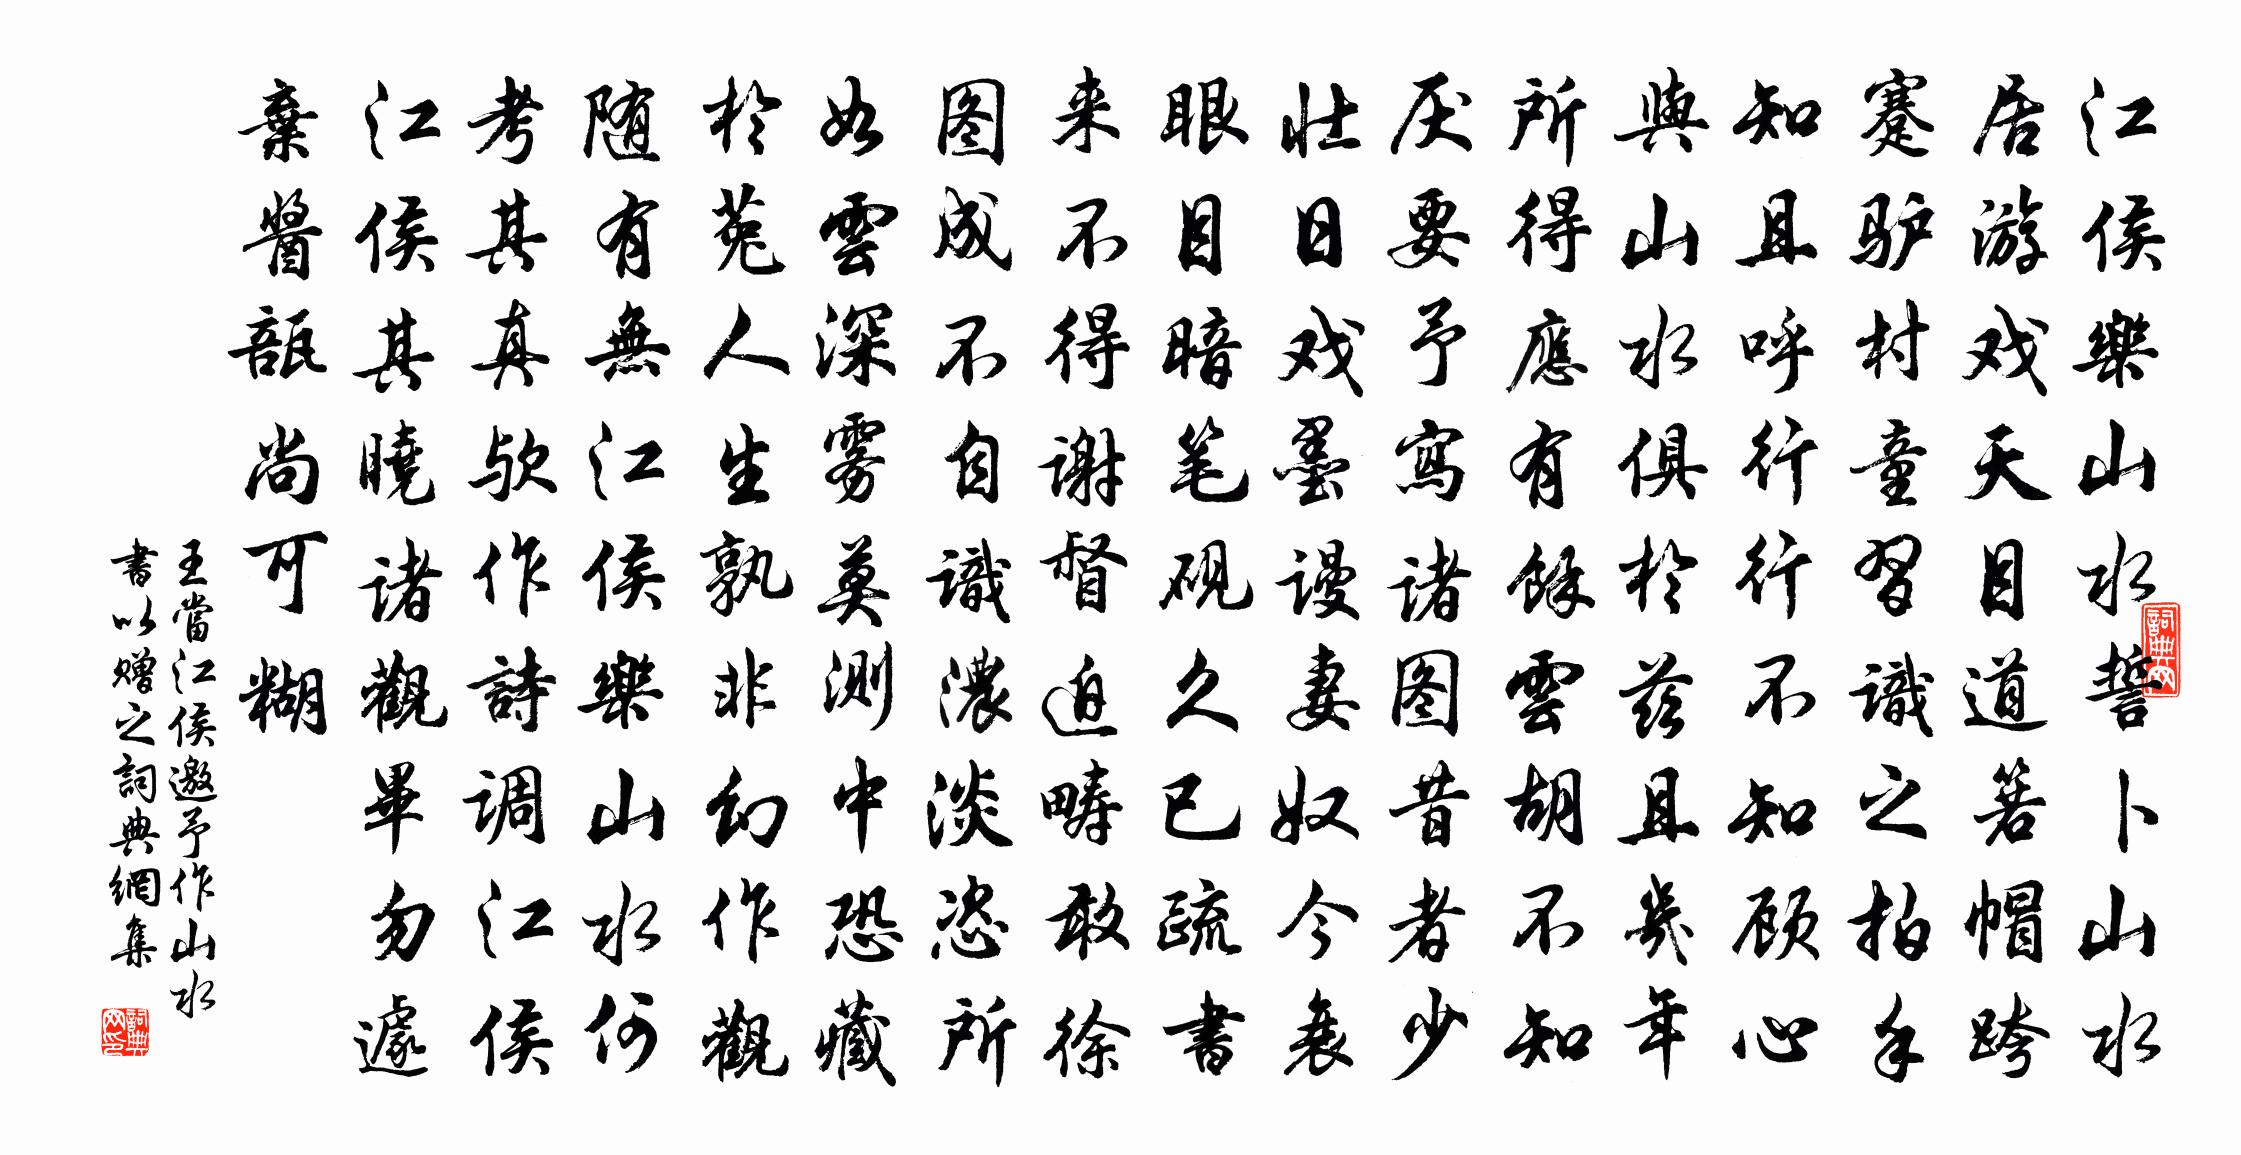 江侯樂山水誓卜山水
居游戏天目道箬帽跨
蹇驴村童習識之拍手
知且呼行行不知顾心
與山水俱於兹且幾年
所得應有餘雲胡不知
厌要予寫诸图昔者少
壮日戏墨謾妻奴今衰
眼目暗笔砚久已疏書
来不得謝督迫畴敢徐
图成不自識濃淡恣所
如雲深雾莫测中恐藏
於菟人生孰非幻作觀
随有無江侯樂山水何
考其真欤作詩调江侯
江侯其曉诸觀畢勿遽
棄醬瓿尚可糊
王當江侯邀予作山水
書以赠之詞典網集
詞典网
詞典网印